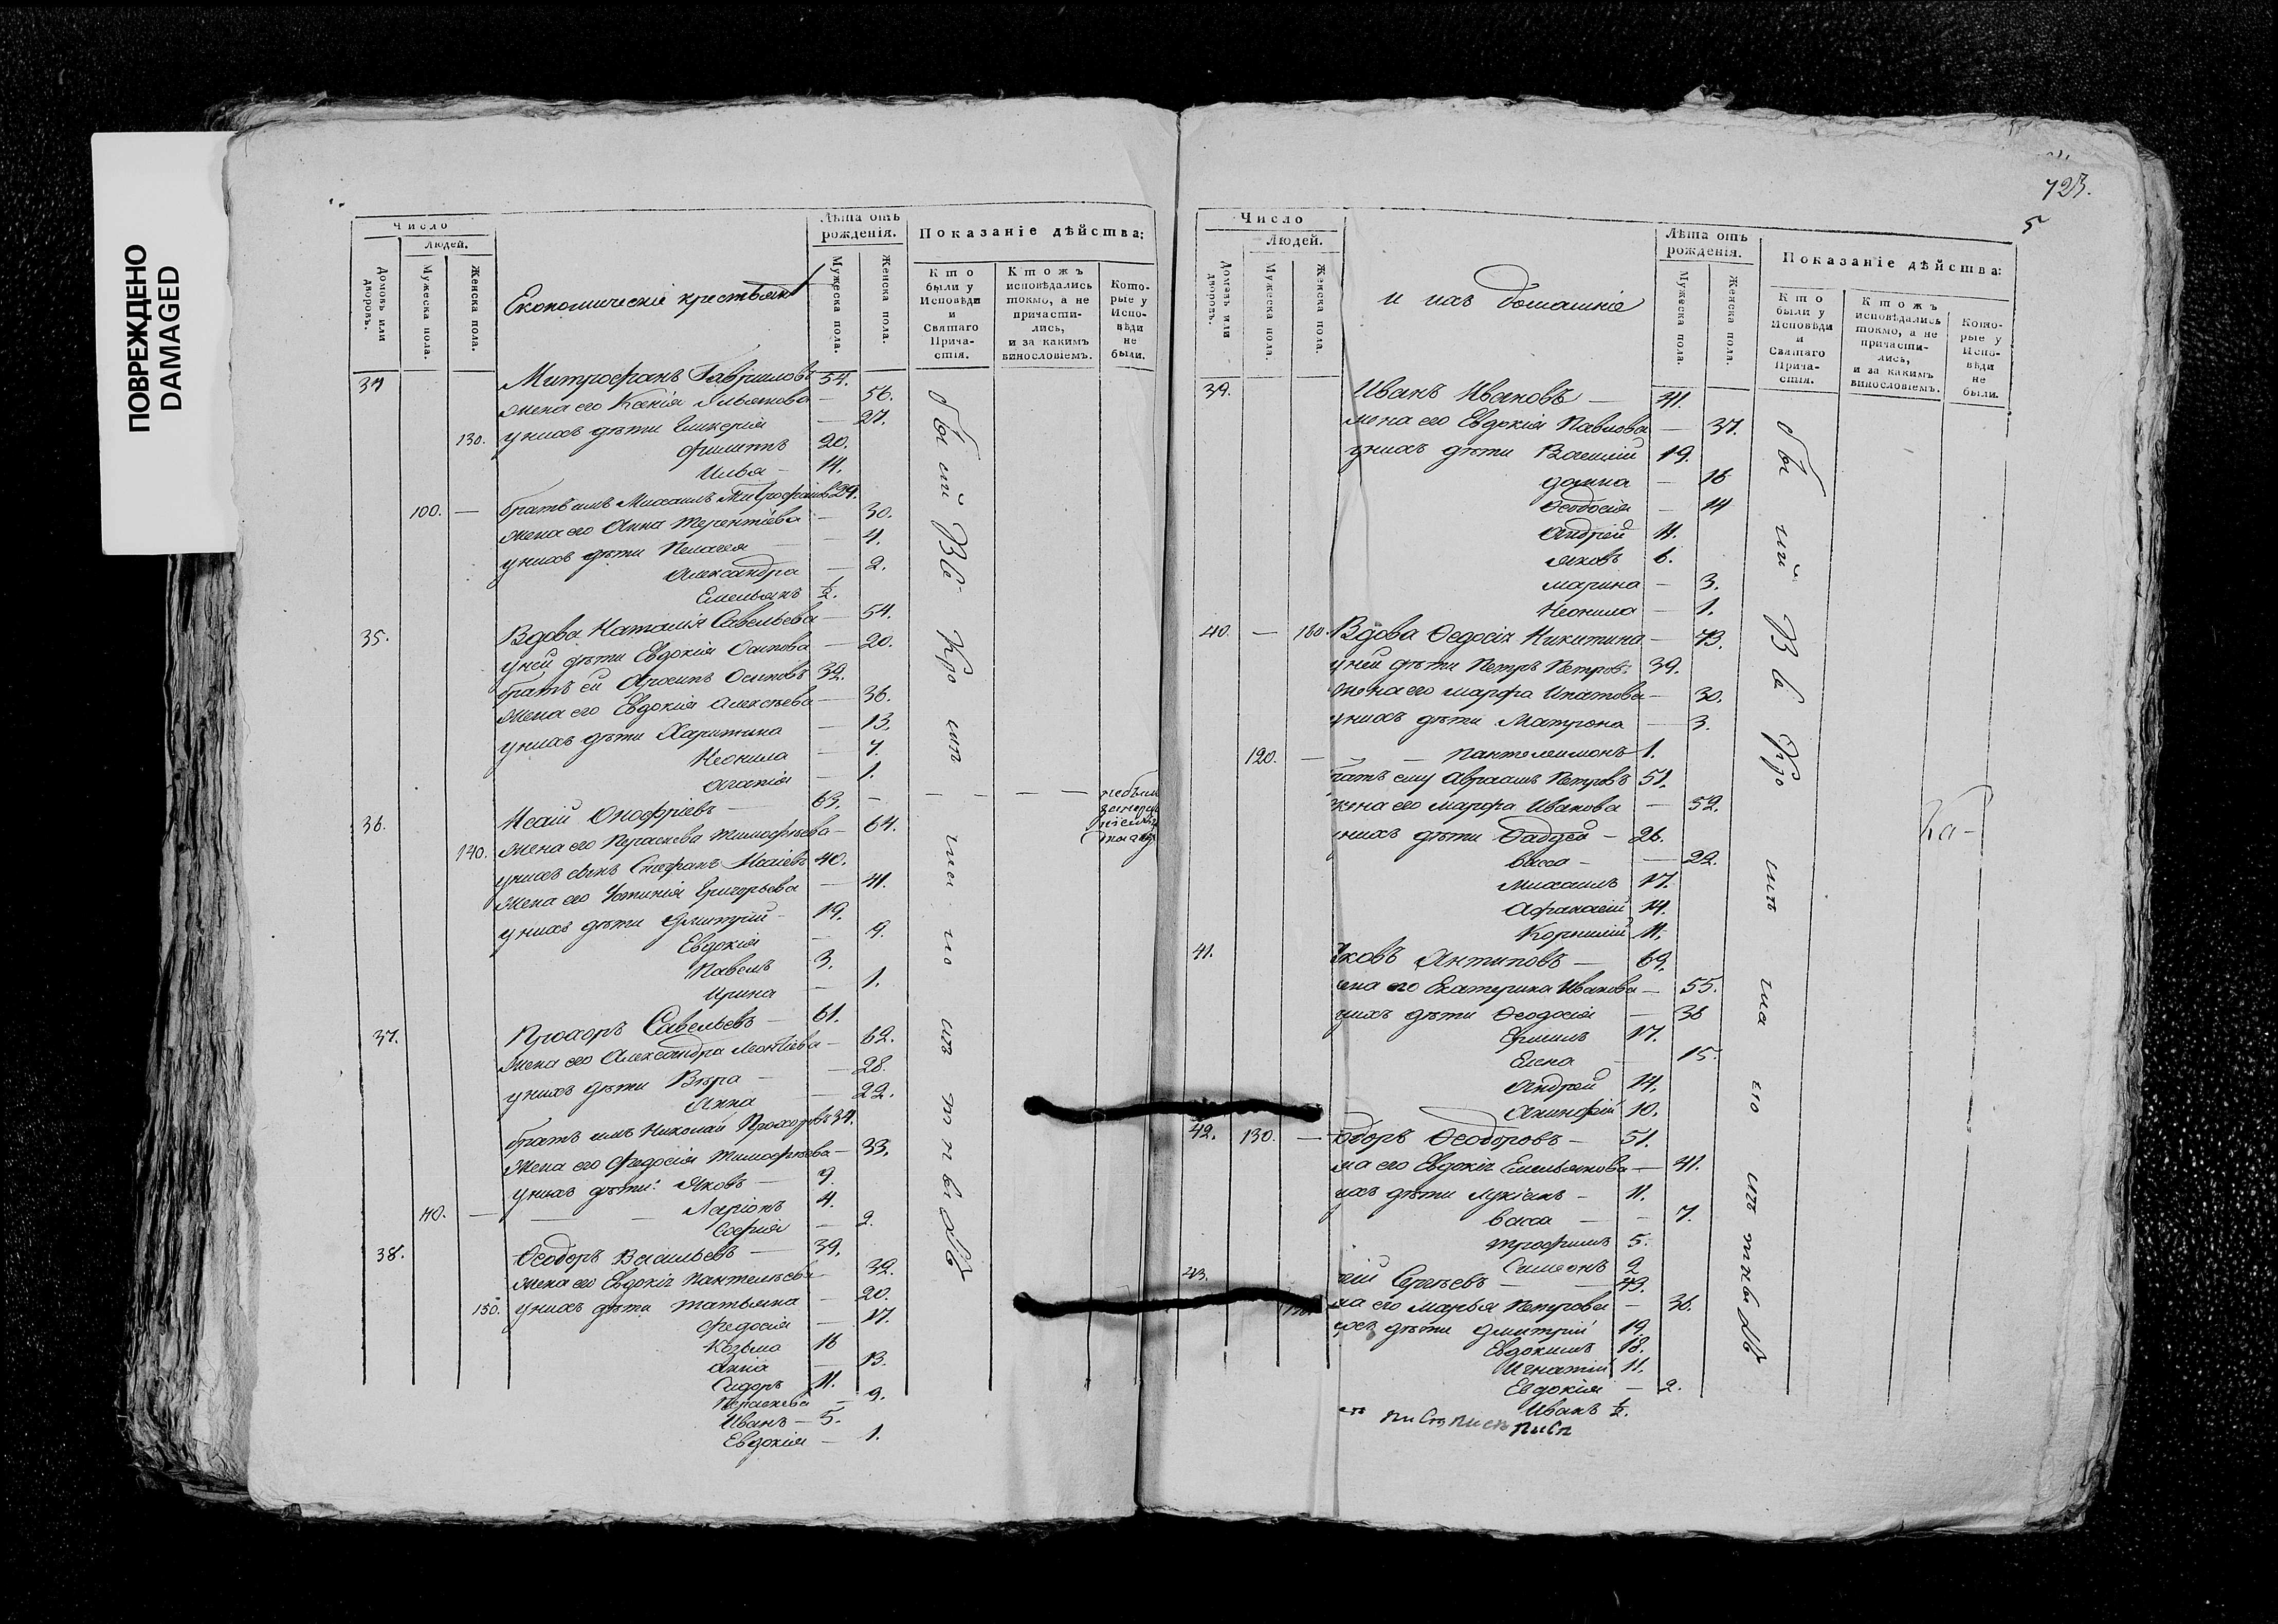 ПОВРЕЖДЕНО
DAMAGED
Число
Людей.
Домовъ или дворовъ.
Мужеска пола.
Женска пола.
Экономическіе крестьяне
Лѣта отъ рожденія.
Мужеска пола.
Женска пола.
Показаніе дѣйства:
Кто были у Исповѣди и Святаго Причастія.
Ктожъ исповѣдались токмо, а не причастились, и за какимъ винословіемъ.
Которые у Исповѣди не были.
34 Митрофанъ Гавриловъ 54.
жена его Ксенія 56.
130. у нихъ дѣти Гликерія — 27.
Филиппъ 20.
Илья — 14.
100. — братъ имъ Михаилъ Митрофановъ 29.
жена его Анна Терентіева — 30.
у нихъ дѣти Пелагея — 4.
Александра — 2.
Емельянъ ½.
35. Вдова Наталія Савельева — 54.
у ней дѣти Евдокія Осипова — 20.
братъ ей Осиповъ 32.
жена его Евдокія Алексѣева — 36.
у нихъ дѣти Харитина — 13.
Неонила — 7.
Агапія — 1.
36. Исаій Онофріевъ — 63. —
140. жена его Праскева Тимофѣева — 64.
у нихъ сынъ Стефанъ Исаіевъ 40.
жена его Устинія Григорьева — 41.
у нихъ дѣти Дмитрій — 19.
Евдокія — 9.
Павелъ 3.
Ирина — 1.
37. Прохоръ Савельевъ — 61.
жена его Александра Леонтіева — 62.
у нихъ дѣти Вѣра — 28.
Анна — 22.
братъ имъ Николай Прохоровъ 34.
жена его Федосія Тимофѣева — 33.
у нихъ дѣти: Яковъ — 9.
110. — Ларіонъ 4.
Софія — 2.
38. Ѳеодоръ Васильевъ — 39.
жена его Евдокія Пантелѣева — 39.
150. у нихъ дѣти Татьяна — 20.
Федосія — 17.
Козьма 16
Анна — 13.
Сидоръ 11.
Праскева — 9.
Иванъ — 5.
Евдокія — 1.
723.
5
Число
Людей.
Домовъ или дворовъ.
Мужеска пола.
Женска пола.
и ихъ домашніе
Лѣта отъ рожденія.
Мужеска пола.
Женска пола.
Показаніе дѣйства:
Кто были у Исповѣди и Святаго Причастія.
Ктожъ исповѣдались токмо, а не причастились, и за какимъ винословіемъ.
Которые у Исповѣди не были.
39. Иванъ Ивановъ — 41.
жена его Евдокія Павлова — 37.
у нихъ дѣти Василій 19.
Домна — 16
Ѳеодосія — 14
Андрей 11.
Яковъ 6.
Марина — 3.
Неонила — 1.
40. — 160. Вдова Ѳедосія Никитина — 73.
у ней дѣти Петръ Петровъ. 39.
жена его Марфа Ипатова — 30.
у нихъ дѣти Матрона — 3.
120. — — Пантелеимонъ 1.
братъ ему Авраамъ Петровъ 51.
жена его Марфа Иванова — 52.
у нихъ дѣти Фаддей — 26.
Васса — 22.
Михаилъ 17.
Афанасій 14.
Корнилій 11.
41. Яковъ Антиповъ — 69.
жена его Екатерина Иванова — 55.
у нихъ дѣти Ѳеодосія — 36
Ермилъ 17.
Елена — 15.
Андрей 14.
10.
42. 130. — Ѳеодоръ Ѳеодоровъ — 51.
жена его Евдокія Емельянова — 41.
у нихъ дѣти Лукіанъ — 11.
Васса — 7.
Трофимъ 5.
Симеонъ 2
43. Сергѣевъ — 43.
жена его Марья Петрова — 36.
у нихъ дѣти Дмитрій 19.
Евдокимъ 18.
Игнатій 11.
Евдокія — 2.
Иванъ ½.